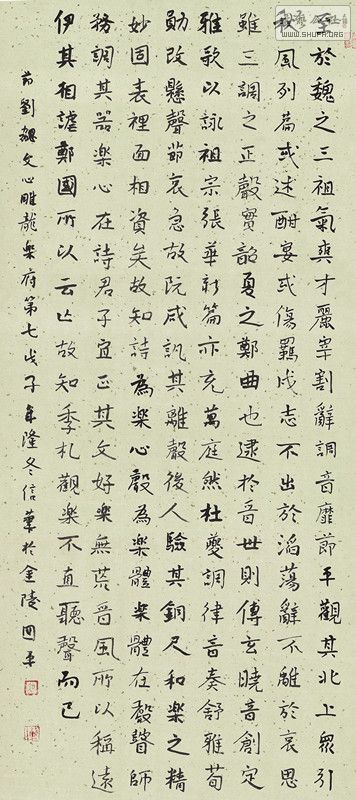 至於魏之三祖氣爽才麗宰割辭調音靡節平觀其北上眾引
秋風列篇或述酣宴或傷羈戍志不出於滔蕩辭不離於哀思
雖三調之正聲實韶夏之鄭曲也逮於音世則傅玄曉音創定
雅歌以詠祖宗張華新篇亦充萬庭然杜夔調律音奏舒雅荀
勖改懸聲節哀急故阮咸譏其離聲後人驗其銅尺和樂之精
妙固表裡面相資矣故知詩為樂心聲為樂體樂體在聲瞽師
務調其器樂心在詩君子宜正其文好樂無荒晉風所以稱遠
伊其相謔鄭國所以云亡故知季札觀樂不直聽聲而已
節劉勰文心雕龍樂府第七戊子年隆冬信筆於金陵國平
www.shufa.org